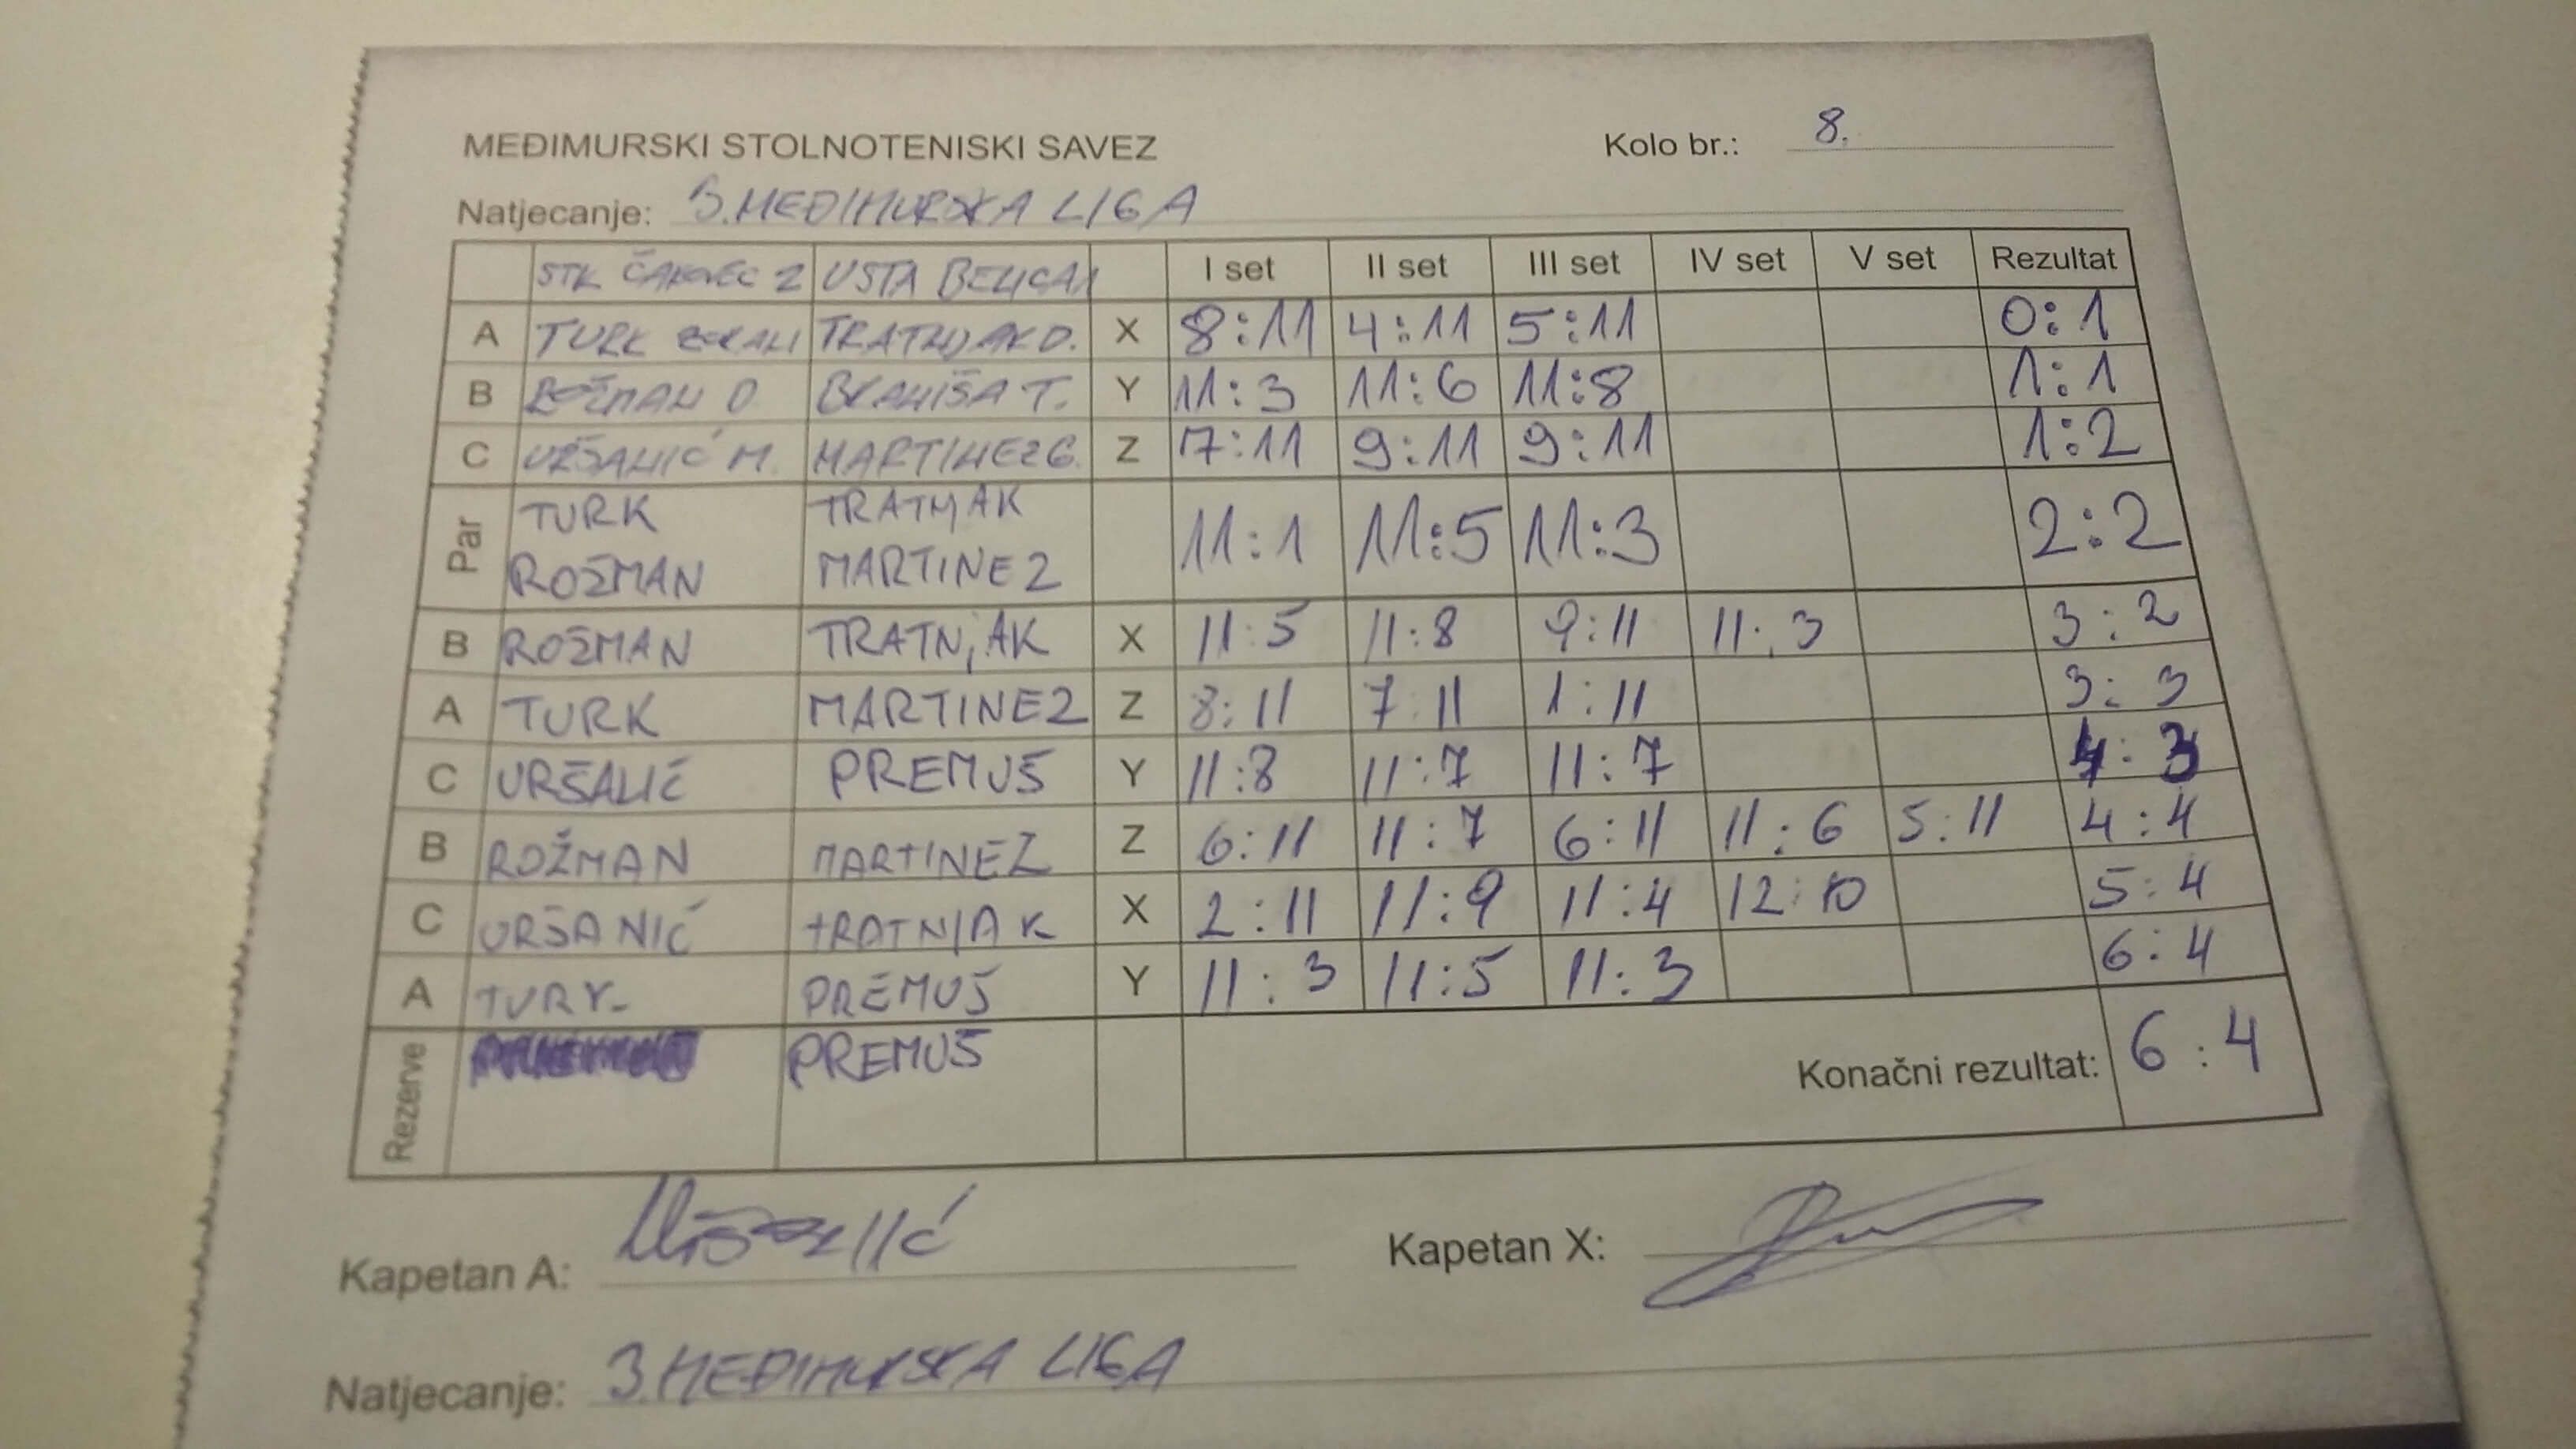 MEĐIMURSKI STOLNOTENISKI SAVEZ Kolo br.: 8.
Natjecanje: 3. MEĐIMURSKA LIGA
STK ČAKOVEC 2 USTA BELICA1 I set II set III set IV set V set Rezultat
A TURK TRATNJAK D. X 8:11 4:11 5:11 0:1
B ROŽMAN D T. Y 11:3 11:6 11:8 1:1
C URŠANIĆ M. MARTINEZ G. Z 7:11 9:11 9:11 1:2
Par TURK TRATNJAK
ROŽMAN MARTINEZ 11:1 11:5 11:3 2:2
B ROŽMAN TRATNJAK X 11:5 11:8 9:11 11:3 3:2
A TURK MARTINEZ Z 8:11 7:11 1:11 3:3
C URŠANIĆ PREMUŠ Y 11:8 11:7 11:7 4:3
B ROŽMAN MARTINEZ Z 6:11 11:7 6:11 11:6 5:11 4:4
C URŠANIĆ TRATNJAK X 2:11 11:9 11:4 12:10 5:4
A TURK PREMUŠ Y 11:3 11:5 11:3 6:4
Rezerve PREMUŠ Konačni rezultat: 6:4
Kapetan A: Kapetan X:
Natjecanje: 3. MEĐIMURSKA LIGA